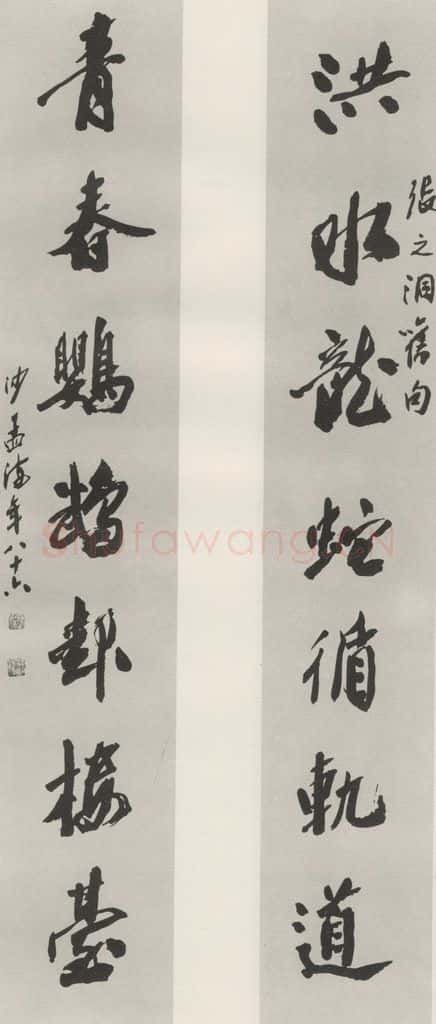 張之洞舊句
洪水龍蛇循軌道
青春鸚鵡樓臺
沙孟海年八十六
Shufawang.CN